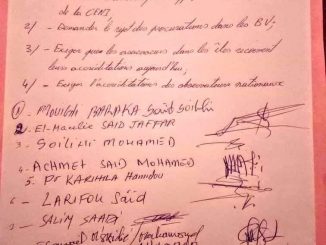 de la CENI
2/ - Demander le rejet des procurations dans les BV;
3/ - Exiger que les assesseurs dans les îles reçoivent
leurs accréditations aujourd'hui;
4/ - Exiger l'accréditation des observateurs nationaux
1 - MOUIGNI BARAKA Said Soilihi
2. El-Hawlie SAID JAFFAR
3 - SOILIHI MOHAMED
4 - ACHMET SAID MOHAMED
5. Dr KARIHILA Hamidou
6 - LARIFOU Said
- SALIM SAADI